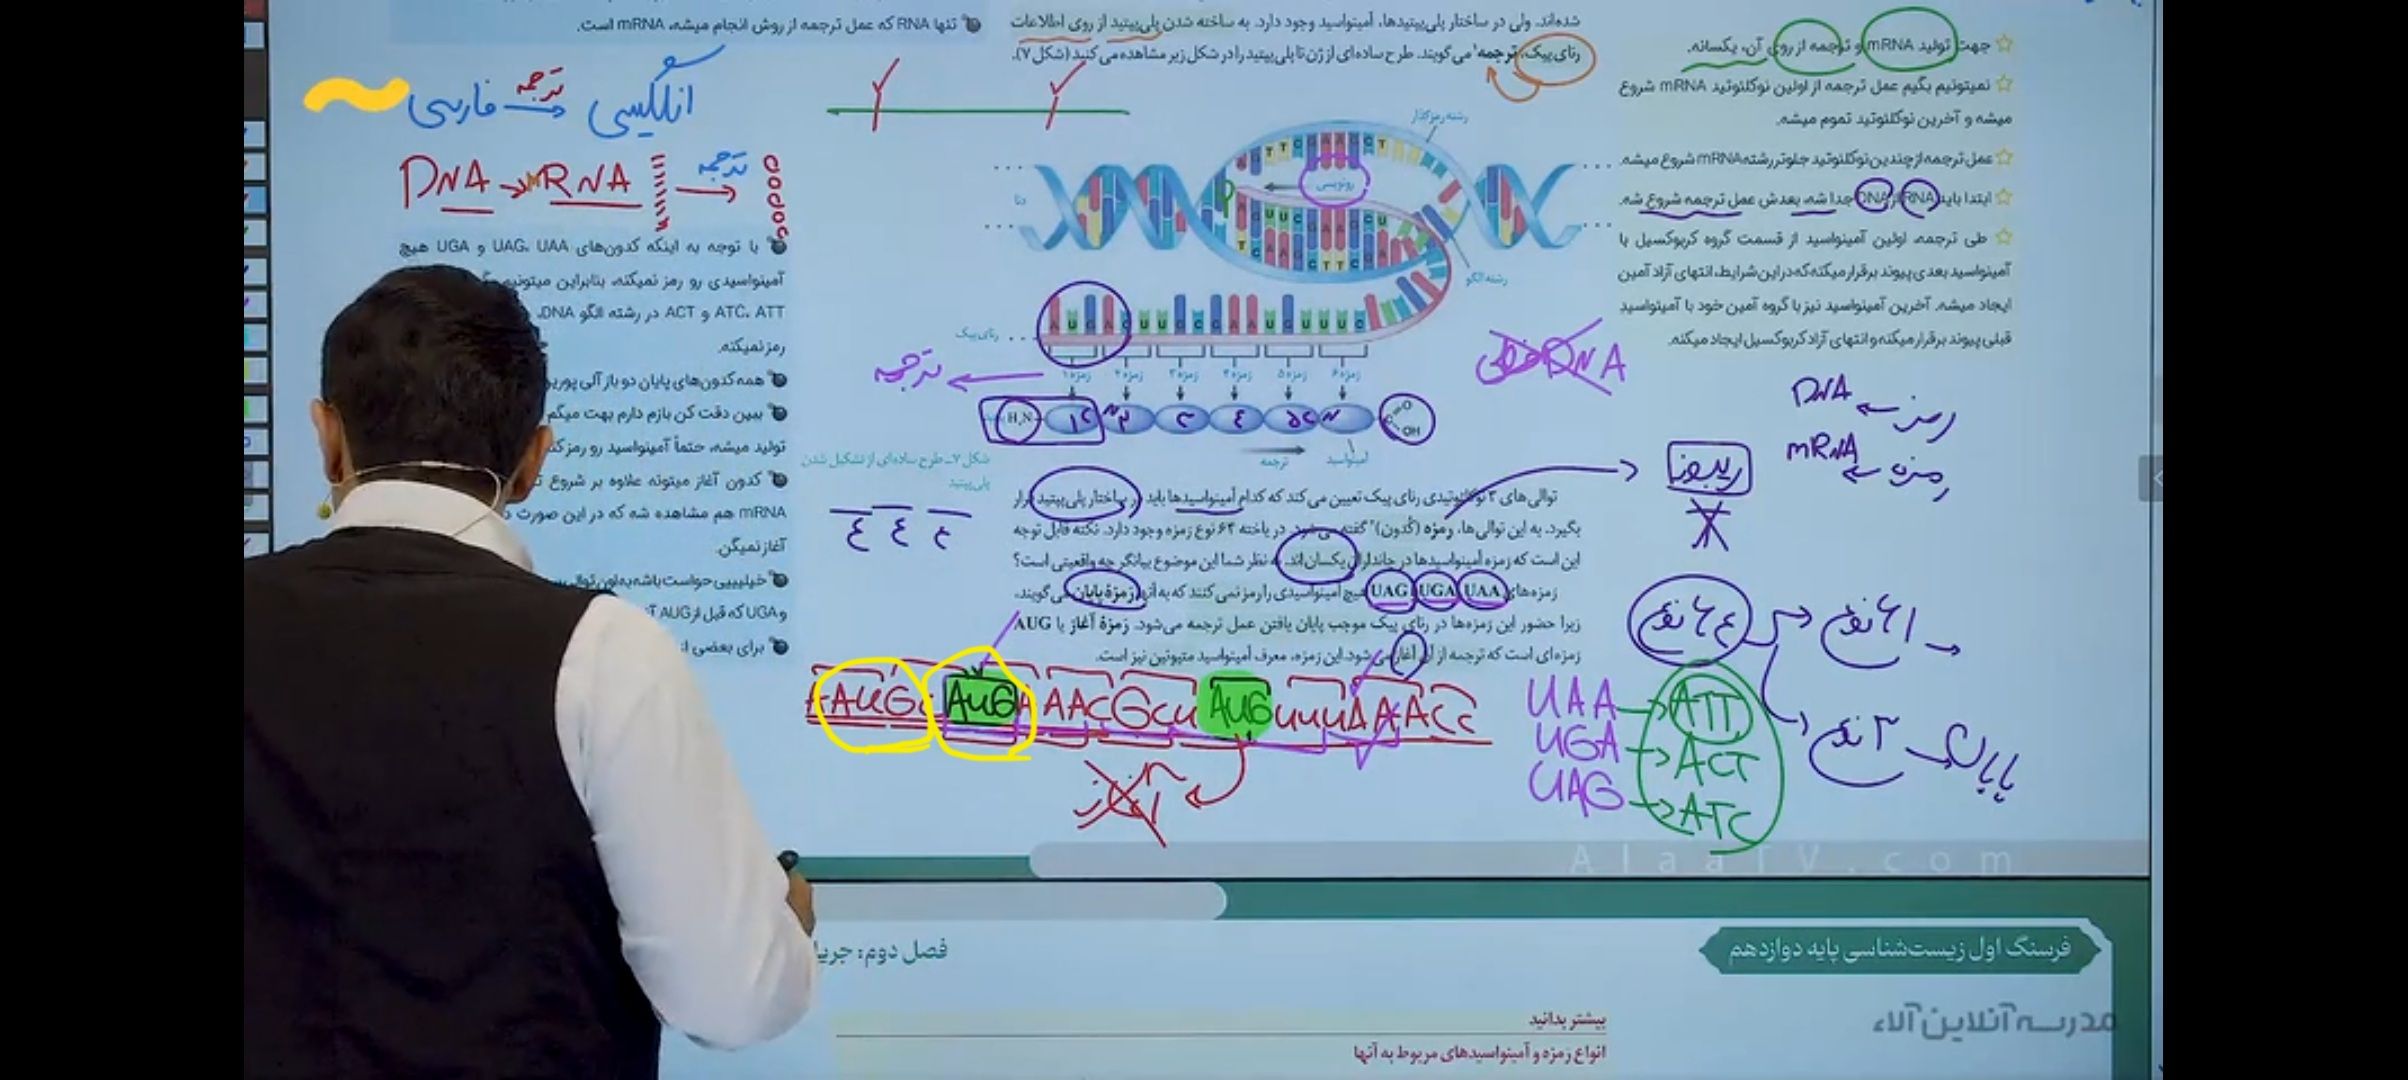 شده‌اند، ولی در ساختار پلی‌پپتیدها، آمینواسید وجود دارد. به ساخته شدن پلی‌پپتید از روی اطلاعات
رنای پیک، ترجمه می‌گویند. طرح ساده‌ای از ژن تا پلی‌پپتید را در شکل زیر مشاهده می‌کنید (شکل ۷).
جهت تولید mRNA و ترجمه از روی آن، یکسانه.
نمیتونیم بگیم عمل ترجمه از اولین نوکلئوتید mRNA شروع
میشه و آخرین نوکلئوتید تموم میشه.
عمل ترجمه از چندین نوکلئوتید جلوتر رشته mRNA شروع میشه.
ابتدا باید RNA از DNA جدا شه، بعدش عمل ترجمه شروع شه.
طی ترجمه، اولین آمینواسید از قسمت گروه کربوکسیل با
آمینواسید بعدی پیوند برقرار میکنه که در این شرایط، انتهای آزاد آمین
ایجاد میشه. آخرین آمینواسید نیز با گروه آمین خود با آمینواسید
قبلی پیوند برقرار میکنه و انتهای آزاد کربوکسیل ایجاد میکنه.
تنها RNA که عمل ترجمه از روش انجام میشه، mRNA است.
انگلیسی ترجمه فارسی
DNA → mRNA ترجمه
با توجه به اینکه کدون‌های UAG، UAA و UGA هیچ
آمینواسیدی رو رمز نمیکنه، بنابراین میتونیم
ATC، ATT و ACT در رشته الگو DNA،
رمز نمیکنه.
همه کدون‌های پایان دو باز آلی
ببین دقت کن بازم دارم بهت میگم
تولید میشه، حتماً آمینواسید رو رمز
کدون آغاز میتونه علاوه بر شروع
mRNA هم مشاهده شه که در این صورت
آغاز نمیگن.
خیلیییی حواست باشه به اون توالی
و UGA که قبل از AUG
برای بعضی از
رشته رمزگذار
دنا
AGTTCGAAGCT
رونویسی
AGUUCGAAGCU
TCAAGCTTCGA
رشته الگو
AUGACUUGCGAAUGUUUC
رنای پیک
زمزه ۱ رمزه ۲ رمزه ۳ رمزه ۴ رمزه ۵ رمزه ۶
ترجمه
H₂N
OH
آمینواسید
ترجمه
شکل ۷ــ طرح ساده‌ای از تشکیل شدن
پلی‌پپتید
RNA
DNA ← رمز
mRNA ← رمزه
توالی‌های ۳ نوکلئوتیدی رنای پیک تعیین می‌کند که کدام آمینواسیدها باید در ساختار پلی‌پپتید قرار
بگیرد. به این توالی‌ها، رمزه (کُدون) گفته می‌شود. در یاخته ۶۴ نوع رمزه وجود دارد. نکته قابل توجه
این است که رمزه آمینواسیدها در جانداران یکسان‌اند. به نظر شما این موضوع بیانگر چه واقعیتی است؟
رمزه‌های UAA، UGA، UAG هیچ آمینواسیدی را رمز نمی‌کنند که به آنها رمزهٔ پایان می‌گویند،
زیرا حضور این رمزه‌ها در رنای پیک موجب پایان یافتن عمل ترجمه می‌شود. رمزهٔ آغاز یا AUG
رمزه‌ای است که ترجمه از آن آغاز می‌شود. این رمزه، معرف آمینواسید متیونین نیز است.
۶۴ نوع → ۶۱ نوع →
۳ نوع → پایان
AAUGC AUGA AACGCU AUG UUUAAACC
آغاز
UAA → ATT
UGA → ACT
UAG → ATC
AlaaTV.com
فرسنگ اول زیست‌شناسی پایه دوازدهم
فصل دوم:
مدرسه آنلاین آلاء
بیشتر بدانید
انواع رمزه و آمینواسیدهای مربوط به آنها